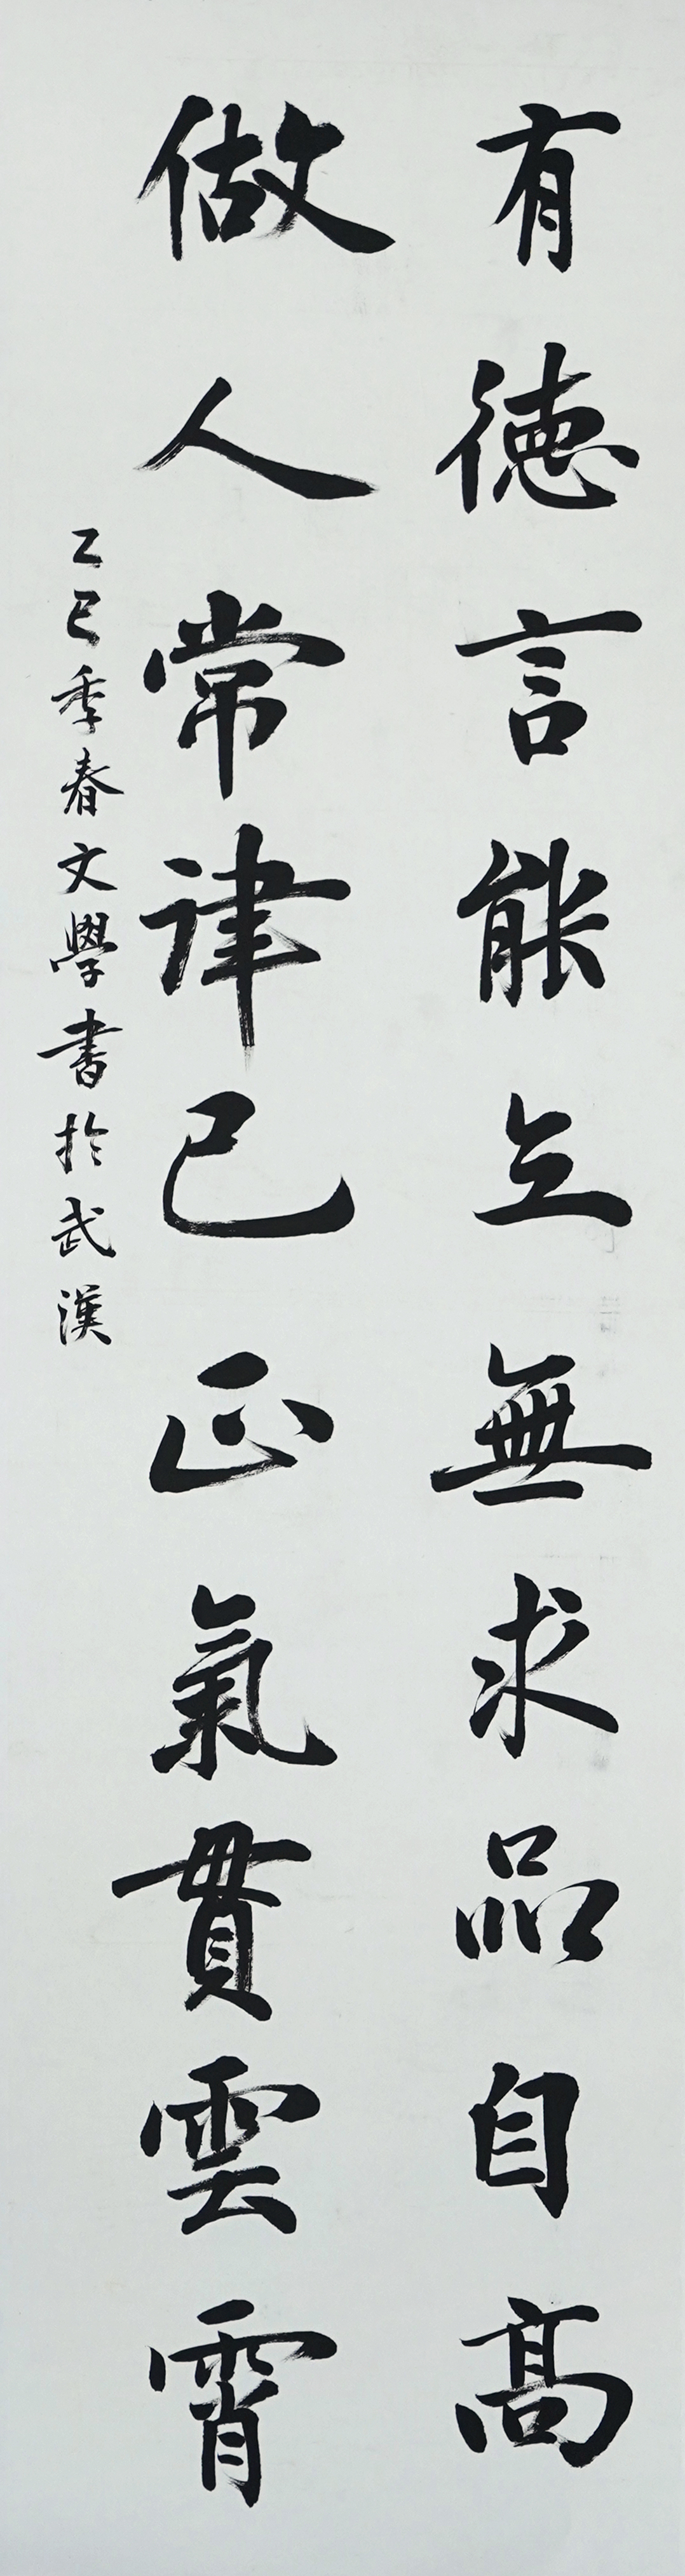 有德言能立無求品自高
做人常律己正氣貫雲霄
乙巳季春文學書於武漢